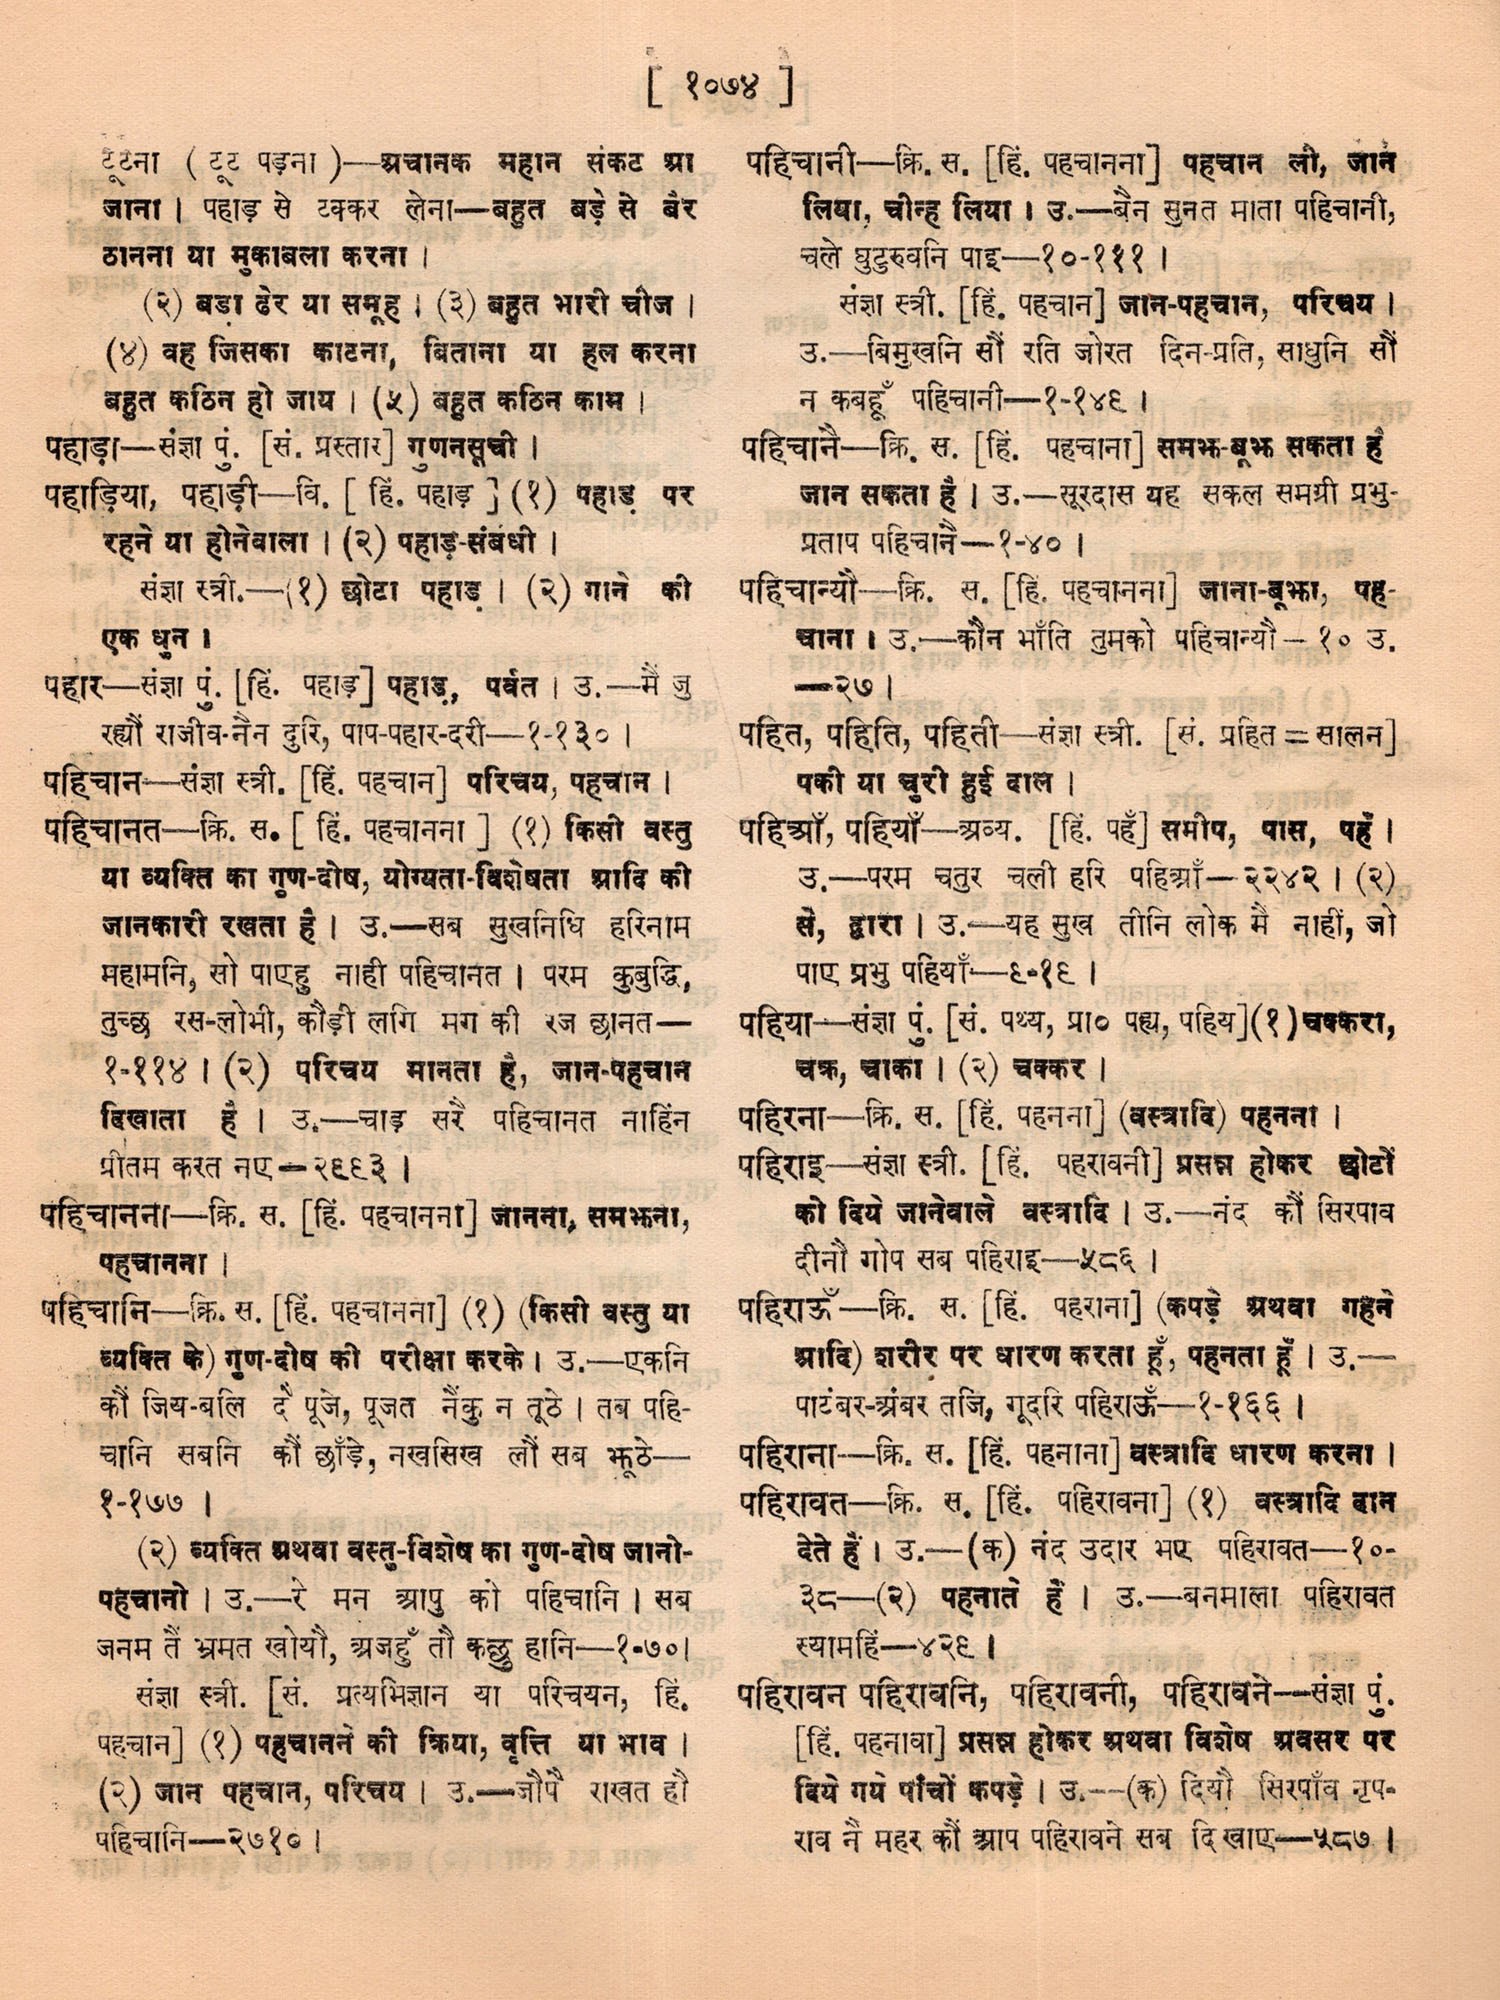 [ १०७४ ]
टूटना ( टूट पड़ना )—अचानक महान संकट आ
जाना। पहाड़ से टक्कर लेना—बहुत बड़े से बैर
ठानना या मुकाबला करना।
(२) बड़ा ढेर या समूह। (३) बहुत भारी चीज।
(४) वह जिसका काटना, बिताना या हल करना
बहुत कठिन हो जाय। (५) बहुत कठिन काम।
पहाड़ा—संज्ञा पुं. [सं. प्रस्तार] गुणनसूची।
पहाड़िया, पहाड़ी—वि. [ हिं. पहाड़ ] (१) पहाड़ पर
रहने या होनेवाला। (२) पहाड़-संबंधी।
संज्ञा स्त्री.—(१) छोटा पहाड़। (२) गाने की
एक धुन।
पहार—संज्ञा पुं. [हिं. पहाड़] पहाड़, पर्वत। उ.—मैं जु
रह्यौं राजीव-नैन दुरि, पाप-पहार-दरी—१-१३०।
पहिचान—संज्ञा स्त्री. [हिं. पहचान] परिचय, पहचान।
पहिचानत—क्रि. स. [ हिं. पहचानना ] (१) किसी वस्तु
या व्यक्ति का गुण-दोष, योग्यता-विशेषता आदि की
जानकारी रखता है। उ.—सब सुखनिधि हरिनाम
महामनि, सो पाएहु नाही पहिचानत। परम कुबुद्धि,
तुच्छ रस-लोभी, कौड़ी लगि मग की रज छानत—
१-११४। (२) परिचय मानता है, जान-पहचान
दिखाता है। उ.—चाड़ सरै पहिचानत नाहिंन
प्रीतम करत नए—२९९३।
पहिचानना—क्रि. स. [हिं. पहचानना] जानना, समझना,
पहचानना।
पहिचानि—क्रि. स. [हिं. पहचानना] (१) (किसी वस्तु या
व्यक्ति के) गुण-दोष की परीक्षा करके। उ.—एकनि
कौं जिय-बलि दै पूजे, पूजत नैंकु न तूठे। तब पहि-
चानि सबनि कौं छाँड़े, नखसिख लौं सब झूठे—
१-१७७ ।
(२) व्यक्ति अथवा वस्तु-विशेष का गुण-दोष जानो-
पहचानो। उ.—रे मन आपु को पहिचानि। सब
जनम तैं भ्रमत खोयौ, अजहुँ तौ कछु हानि—१-७०।
संज्ञा स्त्री. [सं. प्रत्यभिज्ञान या परिचयन, हिं.
पहचान] (१) पहचानने की क्रिया, वृत्ति या भाव।
(२) जान पहचान, परिचय। उ.—जौपै राखत हौ
पहिचानि—२७१०।
पहिचानी—क्रि. स. [हिं. पहचानना] पहचान ली, जान
लिया, चीन्ह लिया। उ.—बैन सुनत माता पहिचानी,
चले घुटुरुवनि पाइ—१०-१११।
संज्ञा स्त्री. [हिं. पहचान] जान-पहचान, परिचय।
उ.—बिमुखनि सौं रति जोरत दिन-प्रति, साधुनि सौं
न कबहूँ पहिचानी—१-१४९।
पहिचानै—क्रि. स. [हिं. पहचाना] समझ-बूझ सकता है
जान सकता है। उ.—सूरदास यह सकल समग्री प्रभु-
प्रताप पहिचानै—१-४०।
पहिचान्यौ—क्रि. स. [हिं. पहचानना] जाना-बूझा, पह-
चाना। उ.—कौन भाँति तुमको पहिचान्यौ—१० उ.
—२७।
पहित, पहिति, पहिती—संज्ञा स्त्री. [सं. प्रहित=सालन]
पकी या चुरी हुई दाल।
पहिआँ, पहियाँ—अव्य. [हिं. पहँ] समीप, पास, पहँ।
उ.—परम चतुर चली हरि पहिआँ—२२४२। (२)
से, द्वारा। उ.—यह सुख तीनि लोक मैं नाहीं, जो
पाए प्रभु पहियाँ—९-१९।
पहिया—संज्ञा पुं. [सं. पथ्य, प्रा० पह्य, पहिय](१)चक्करा,
चक्र, चाका। (२) चक्कर।
पहिरना—क्रि. स. [हिं. पहनना] (वस्त्रादि) पहनना।
पहिराइ—संज्ञा स्त्री. [हिं. पहरावनी] प्रसन्न होकर छोटों
को दिये जानेवाले वस्त्रादि। उ.—नंद कौं सिरपाव
दीनौ गोप सब पहिराइ—५८६।
पहिराऊँ—क्रि. स. [हिं. पहराना] (कपड़े अथवा गहने
आदि) शरीर पर धारण करता हूँ, पहनता हूँ। उ.—
पाटंबर-अंबर तजि, गूदरि पहिराऊँ—१-१६६।
पहिराना—क्रि. स. [हिं. पहनाना] वस्त्रादि धारण करना।
पहिरावत—क्रि. स. [हिं. पहिरावना] (१) वस्त्रादि दान
देते हैं। उ.—(क) नंद उदार भए पहिरावत—१०-
३८—(२) पहनाते हैं। उ.—बनमाला पहिरावत
स्यामहिं—४२९।
पहिरावन पहिरावनि, पहिरावनी, पहिरावने—संज्ञा पुं.
[हिं. पहनावा] प्रसन्न होकर अथवा विशेष अवसर पर
दिये गये पाँचों कपड़े। उ.—(क) दियौ सिरपाँव नृप-
राव नै महर कौं आप पहिरावने सब दिखाए—५८७।